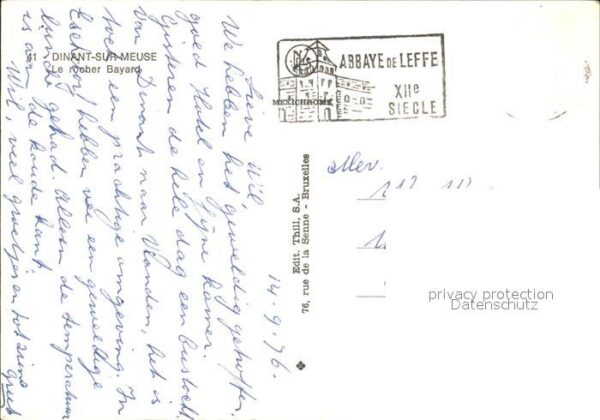 41 - DINANT-SUR-MEUSE
Le rocher Bayard
ABBAYE DE LEFFE
XIIe
SIECLE
MEXICHROME
14.9.'76.
Lieve Wil,
We hebben het geweldig getroffen,
goed Hotel en fijne kamer.
Gisteren de hele dag een bustocht
van Dinant naar Vianden, het is
toch een prachtige omgeving. In
hebben we een geweldige
gehad. Alleen de temperatuur
is aan de koude kant.
Wil, veel groetjes en tot ziens
Greet
Edit. Thill, S.A.
76, rue de la Senne - Bruxelles
Mev.
privacy protection
Datenschutz